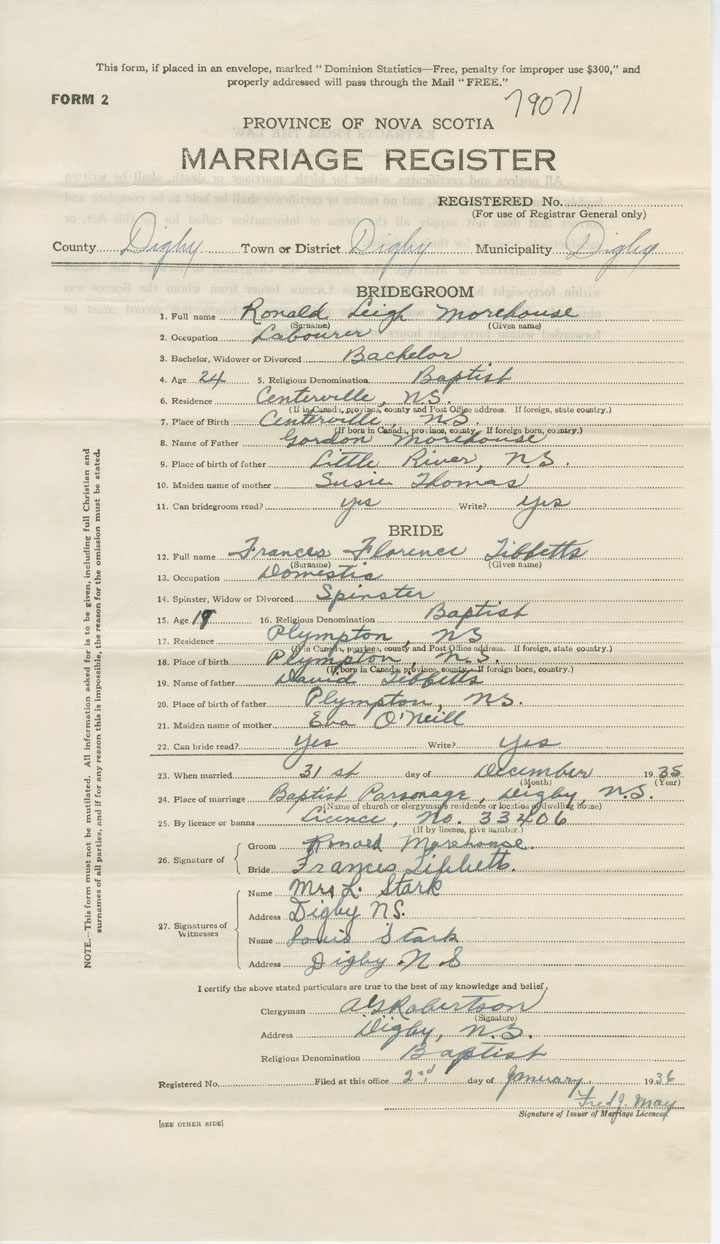 This form, if placed in an envelope, marked "Dominion Statistics—Free, penalty for improper use $300," and
properly addressed will pass through the Mail "FREE."
FORM 2
79071
PROVINCE OF NOVA SCOTIA
MARRIAGE REGISTER
REGISTERED No.
(For use of Registrar General only)
County Digby Town or District Digby Municipality Digby
BRIDEGROOM
1. Full name Ronald Leigh Morehouse
(Surname) (Given name)
2. Occupation Labourer
3. Bachelor, Widower or Divorced Bachelor
4. Age 24 5. Religious Denomination Baptist
6. Residence Centerville, N.S.
(If in Canada, province, county and Post Office address. If foreign, state country.)
7. Place of Birth Centerville, N.S.
(If born in Canada, province, county. If foreign born, country.)
8. Name of Father Gordon Morehouse
9. Place of birth of father Little River, N.S.
10. Maiden name of mother Susie Thomas
11. Can bridegroom read? Yes Write? Yes
BRIDE
12. Full name Frances Florence Tibbetts
(Surname) (Given name)
13. Occupation Domestic
14. Spinster, Widow or Divorced Spinster
15. Age 16. Religious Denomination Baptist
17. Residence Plympton, NS
(If in Canada, province, county and Post Office address. If foreign, state country.)
18. Place of birth Plympton, N.S.
(If born in Canada, province, county. If foreign born, country.)
19. Name of father David Tibbetts
20. Place of birth of father Plympton, NS.
21. Maiden name of mother Eva O'Neill
22. Can bride read? Yes Write? Yes
23. When married 31st day of December 1935
(Month) (Year)
24. Place of marriage Baptist Parsonage, Digby, N.S.
(Name of church or clergyman's residence or location of dwelling house)
25. By licence or banns Licence, No. 33406
(If by licence, give number.)
26. Signature of
Groom Ronald Morehouse.
Bride Frances Tibbetts.
27. Signatures of Witnesses
Name Mrs L. Stark
Address Digby NS.
Name Louis Stark
Address Digby N S
I certify the above stated particulars are true to the best of my knowledge and belief,
Clergyman A G Robertson
(Signature)
Address Digby, N.S.
Religious Denomination Baptist
Registered No. Filed at this office 2nd day of January 1936
Fred J. May
Signature of Issuer of Marriage Licences
[SEE OTHER SIDE]
NOTE.—This form must not be mutilated. All information asked for is to be given, including full Christian and
surnames of all parties, and if for any reason this is impossible, the reason for the omission must be stated.